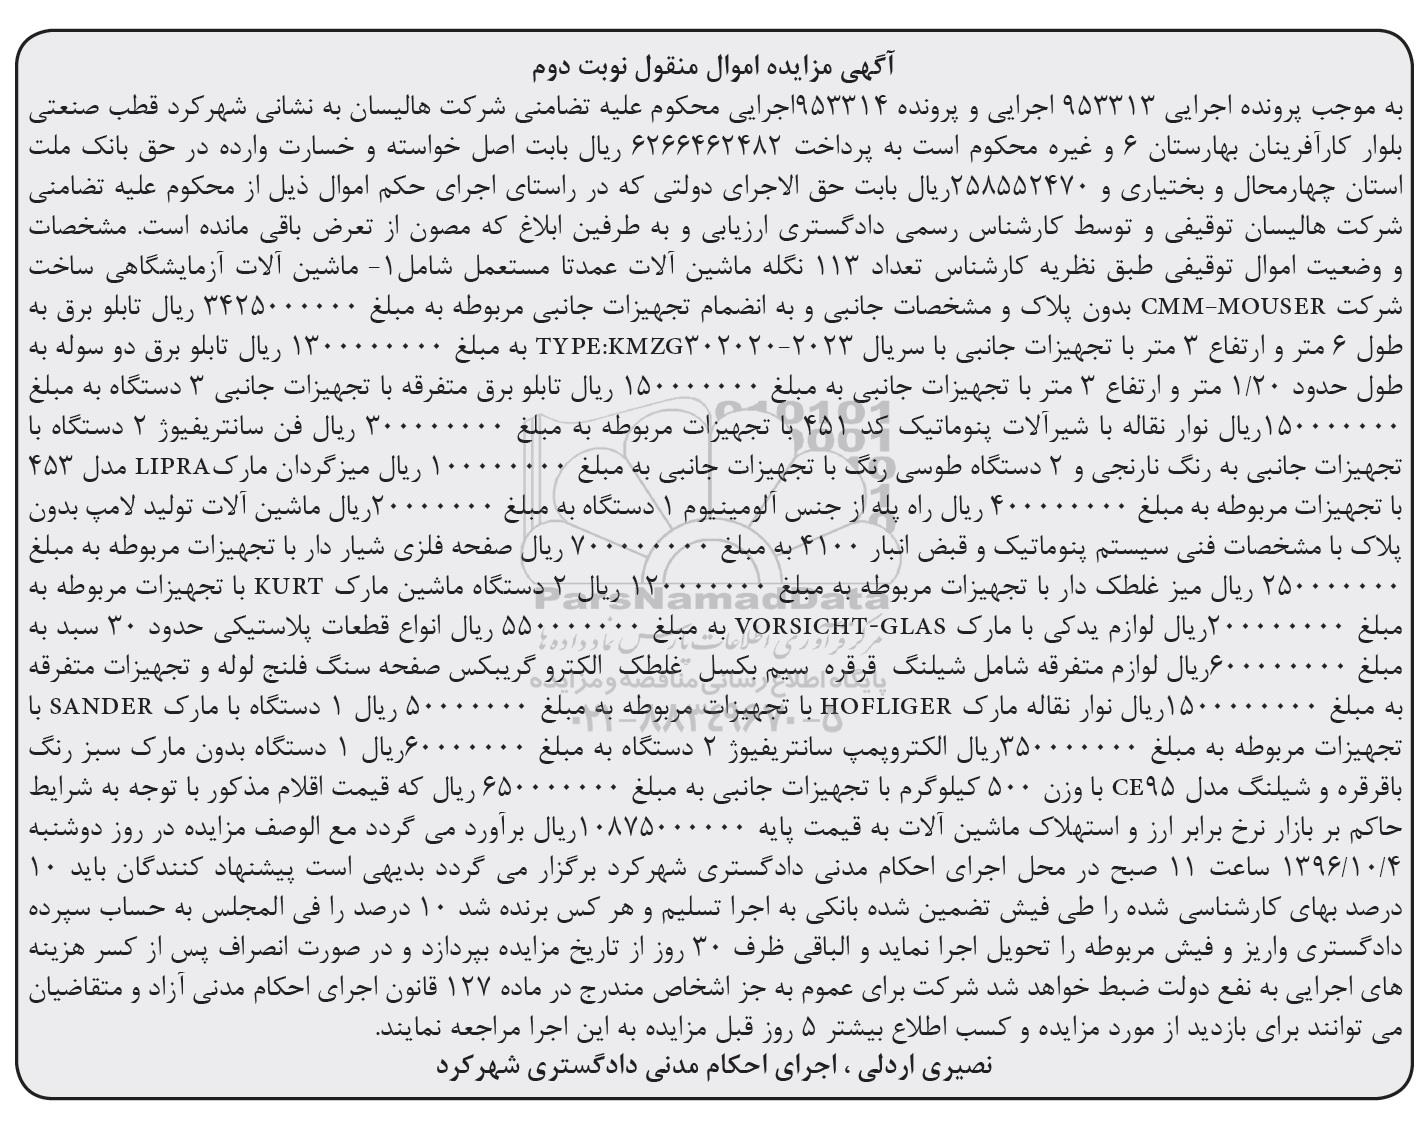 آگهی مزایده اموال منقول نوبت دوم
به موجب پرونده اجرایی ۹۵۳۳۱۳ اجرایی و پرونده ۹۵۳۳۱۴اجرایی محکوم علیه تضامنی شرکت هالیسان به نشانی شهرکرد قطب صنعتی
بلوار کارآفرینان بهارستان ۶ و غیره محکوم است به پرداخت ۶۲۶۶۴۶۲۴۸۲ ریال بابت اصل خواسته و خسارت وارده در حق بانک ملت
استان چهارمحال و بختیاری و ۲۵۸۵۵۲۴۷۰ریال بابت حق الاجرای دولتی که در راستای اجرای حکم اموال ذیل از محکوم علیه تضامنی
شرکت هالیسان توقیفی و توسط کارشناس رسمی دادگستری ارزیابی و به طرفین ابلاغ که مصون از تعرض باقی مانده است. مشخصات
و وضعیت اموال توقیفی طبق نظریه کارشناس تعداد ۱۱۳ نگله ماشین آلات عمدتا مستعمل شامل۱- ماشین آلات آزمایشگاهی ساخت
شرکت CMM-MOUSER بدون پلاک و مشخصات جانبی و به انضمام تجهیزات جانبی مربوطه به مبلغ ۳۴۲۵۰۰۰۰۰۰ ریال تابلو برق به
طول ۶ متر و ارتفاع ۳ متر با تجهیزات جانبی با سریال TYPE:KMZG۳۰۲۰۲۰-۲۰۲۳ به مبلغ ۱۳۰۰۰۰۰۰۰۰ ریال تابلو برق دو سوله به
طول حدود ۱/۲۰ متر و ارتفاع ۳ متر با تجهیزات جانبی به مبلغ ۱۵۰۰۰۰۰۰۰ ریال تابلو برق متفرقه با تجهیزات جانبی ۳ دستگاه به مبلغ
۱۵۰۰۰۰۰۰۰ریال نوار نقاله با شیرآلات پنوماتیک کد ۴۵۱ با تجهیزات مربوطه به مبلغ ۳۰۰۰۰۰۰۰۰ ریال فن سانتریفیوژ ۲ دستگاه با
تجهیزات جانبی به رنگ نارنجی و ۲ دستگاه طوسی رنگ با تجهیزات جانبی به مبلغ ۱۰۰۰۰۰۰۰۰ ریال میزگردان مارکLIPRA مدل ۴۵۳
با تجهیزات مربوطه به مبلغ ۴۰۰۰۰۰۰۰۰ ریال راه پله از جنس آلومینیوم ۱ دستگاه به مبلغ ۲۰۰۰۰۰۰۰ریال ماشین آلات تولید لامپ بدون
پلاک با مشخصات فنی سیستم پنوماتیک و قبض انبار ۴۱۰۰ به مبلغ ۷۰۰۰۰۰۰۰۰ ریال صفحه فلزی شیار دار با تجهیزات مربوطه به مبلغ
۲۵۰۰۰۰۰۰۰ ریال میز غلطک دار با تجهیزات مربوطه به مبلغ ۱۲۰۰۰۰۰۰۰ ریال ۲ دستگاه ماشین مارک KURT با تجهیزات مربوطه به
مبلغ ۲۰۰۰۰۰۰۰۰ریال لوازم یدکی با مارک VORSICHT-GLAS به مبلغ ۵۵۰۰۰۰۰۰۰ ریال انواع قطعات پلاستیکی حدود ۳۰ سبد به
مبلغ ۶۰۰۰۰۰۰۰۰ریال لوازم متفرقه شامل شیلنگ قرقره سیم بکسل غلطک الکترو گریبکس صفحه سنگ فلنج لوله و تجهیزات متفرقه
به مبلغ ۱۵۰۰۰۰۰۰۰۰ریال نوار نقاله مارک HOFLIGER با تجهیزات مربوطه به مبلغ ۵۰۰۰۰۰۰۰ ریال ۱ دستگاه با مارک SANDER با
تجهیزات مربوطه به مبلغ ۳۵۰۰۰۰۰۰۰ریال الکتروپمپ سانتریفیوژ ۲ دستگاه به مبلغ ۶۰۰۰۰۰۰۰ریال ۱ دستگاه بدون مارک سبز رنگ
باقرقره و شیلنگ مدل CE۹۵ با وزن ۵۰۰ کیلوگرم با تجهیزات جانبی به مبلغ ۶۵۰۰۰۰۰۰۰ ریال که قیمت اقلام مذکور با توجه به شرایط
حاکم بر بازار نرخ برابر ارز و استهلاک ماشین آلات به قیمت پایه ۱۰۸۷۵۰۰۰۰۰۰ریال برآورد می گردد مع الوصف مزایده در روز دوشنبه
۱۳۹۶/۱۰/۴ ساعت ۱۱ صبح در محل اجرای احکام مدنی دادگستری شهرکرد برگزار می گردد بدیهی است پیشنهاد کنندگان باید ۱۰
درصد بهای کارشناسی شده را طی فیش تضمین شده بانکی به اجرا تسلیم و هر کس برنده شد ۱۰ درصد را فی المجلس به حساب سپرده
دادگستری واریز و فیش مربوطه را تحویل اجرا نماید و الباقی ظرف ۳۰ روز از تاریخ مزایده بپردازد و در صورت انصراف پس از کسر هزینه
های اجرایی به نفع دولت ضبط خواهد شد شرکت برای عموم به جز اشخاص مندرج در ماده ۱۲۷ قانون اجرای احکام مدنی آزاد و متقاضیان
می توانند برای بازدید از مورد مزایده و کسب اطلاع بیشتر ۵ روز قبل مزایده به این اجرا مراجعه نمایند.
نصیری اردلی ، اجرای احکام مدنی دادگستری شهرکرد
ParsNamadData
مرکز فرآوری اطلاعات پارس نماد داده ها
پایگاه اطلاع رسانی مناقصه و مزایده
۰۲۱-۸۸۳۴۹۶۷۰-۵